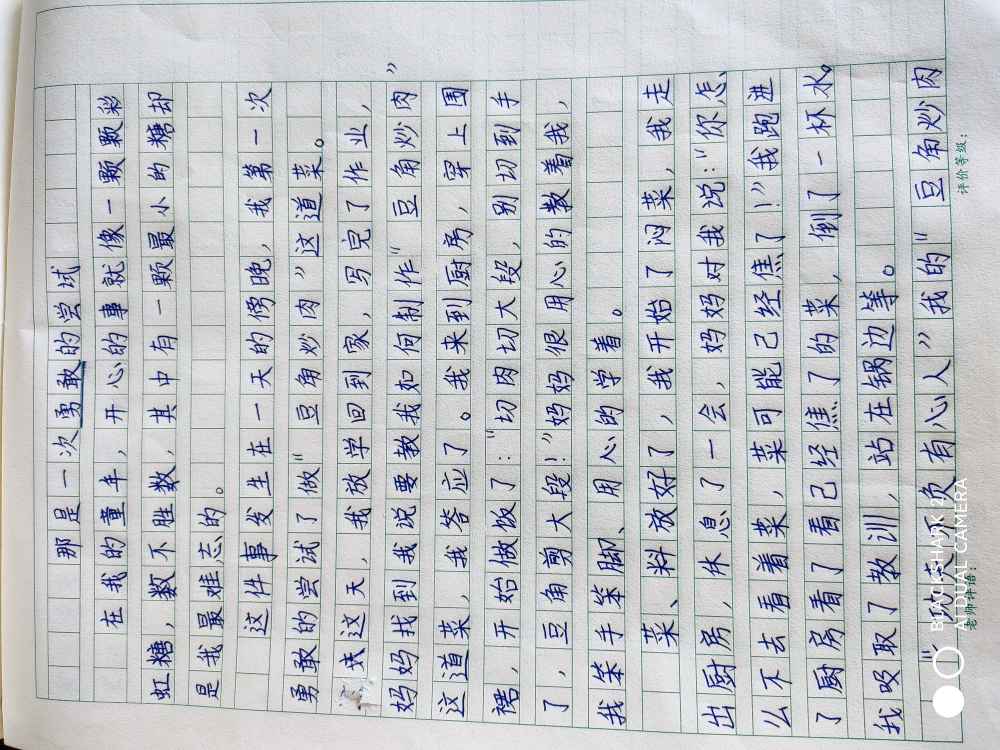 那是一次勇敢的尝试
在我的童年,开心的事就像一颗颗彩
虹糖,数不胜数,其中有一颗最小的糖却
是我最难忘的。
这件事发生在一天的傍晚,我第一次
勇敢的尝试了做"豆角炒肉"这道菜。
这天,我放学回到家,写完了作业,
妈妈找到我说要教我如何制作"豆角炒肉"
这道菜,我答应了。我来到厨房,穿上围
裙,开始做饭了:"切肉切大段,别切到手
了,豆角剪大段!"妈妈很用心的教着我,
我笨手笨脚、用心的学着。
菜、料放好了,我开始了闷菜,我走
出厨房,休息了一会,妈妈对我说:"你怎
么不去看着菜,菜可能已经焦了!"我跑进
了厨房看了看已经焦了的菜,倒了一杯水。
我吸取了教训,站在锅边等。
有心人"我的"豆角炒肉
老师评语:
评价等级:
BLACK SHARK
AI DUAL CAMERA